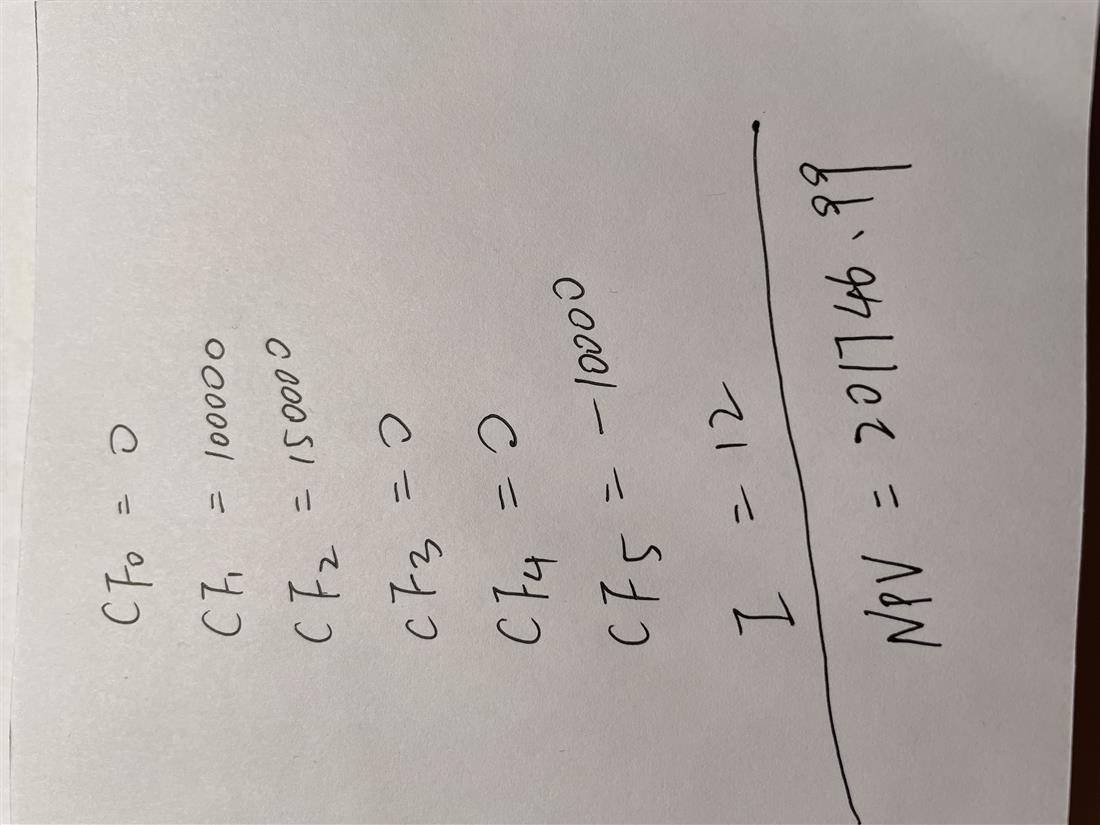 CF0 = 0
CF1 = 100000
CF2 = 150000
CF3 = 0
CF4 = 0
CF5 = -10000
I = 12
NPV =